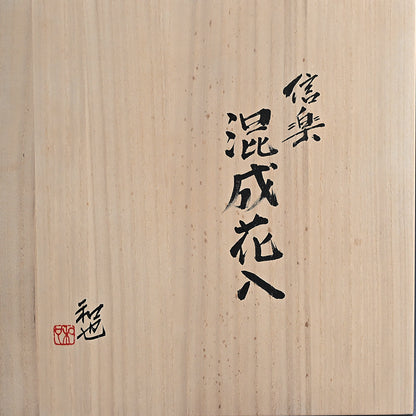 信楽
混成花入
和也